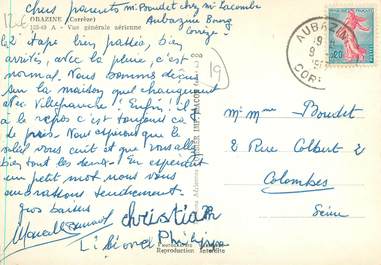 Chers parents m. Boudet chez Mr Lacombe
OBAZINE (Corrèze) Aubazine Bourg
A - Vue générale aérienne Corrèze
L'étape bien passée, bien
arrivés, avec la pluie, c'est
normal. Nous sommes déçus
sur la maison quel changement
avec Villefranche! Enfin! il y
a le repos c'est toujours ça
de pris. Nous espérons que le
soleil vous cuit et que vous allez
bien tous les deux. En espérant
un petit mot nous vous
embrassons tendrement
gros baisers
christian
Philippe
19
AUBAZINE
9
COR
0,20
Mr Mme Boudet
2 Rue Colbert 2
Colombes
Seine
Reproduction Interdite